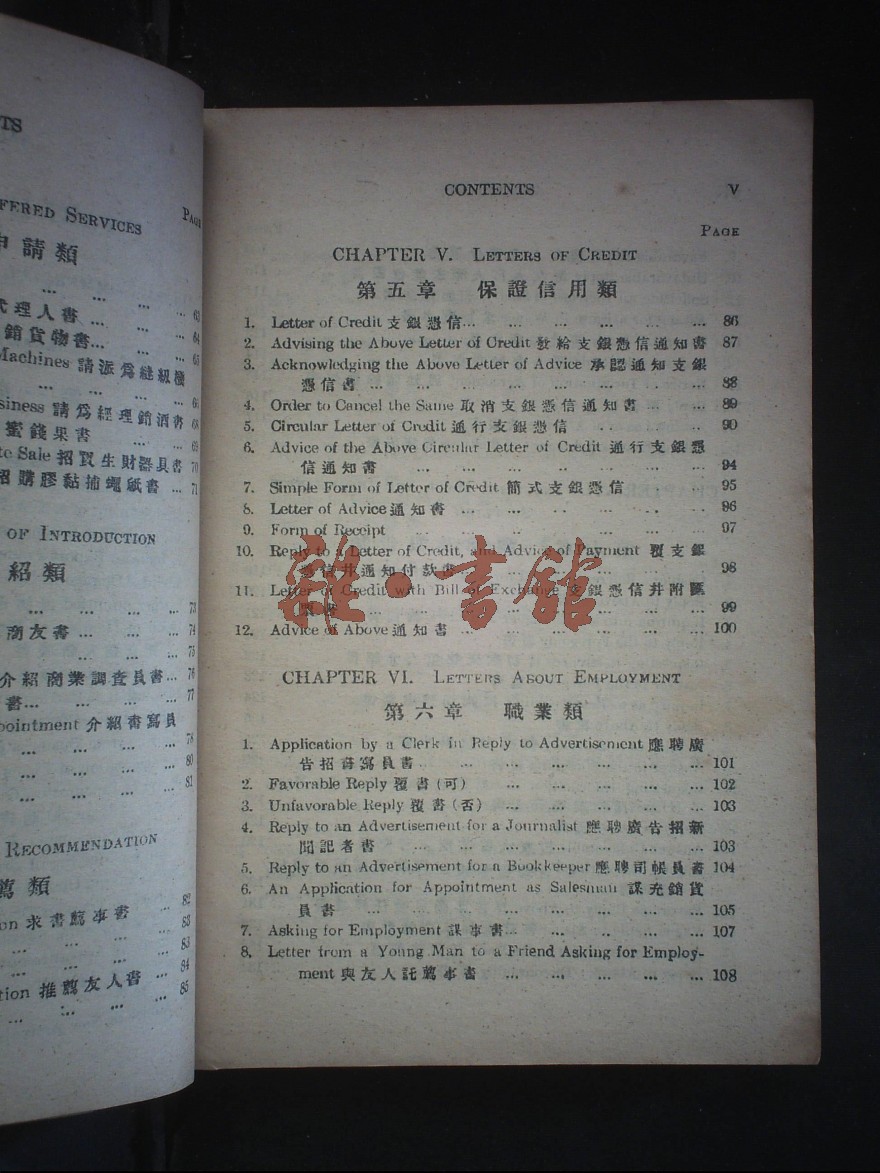 TS
FFERED SERVICES PAGE
申請類
... ... ... ... 63
代理人書 ... ... ... 64
銷貨物書... ... ... 65
Machines 請派為縫級機
... ... ... 66
siness 請為經理銷酒書 68
蜜餞果書 ... ... 69
te Sale 招買生財器具書 70
招購膠黏捕蠅紙書 ... 71
OF INTRODUCTION
紹類
... ... ... ... 73
商友書 ... ... ... 74
... ... ... 75
介紹商業調查員書... 76
書... ... ... ... 77
pointment 介紹書寫員
... ... ... ... 78
... ... ... ... 80
... ... ... ... 81
RECOMMENDATION
薦類
on 求書薦事書 ... 82
... ... ... ... 83
... ... ... ... 83
... ... ... ... 84
tion 推薦友人書 ... 85
CONTENTS V
PAGE
CHAPTER V. LETTERS OF CREDIT
第五章 保證信用類
1. Letter of Credit 支銀憑信... ... ... ... ... 86
2. Advising the Above Letter of Credit 發給支銀憑信通知書 87
3. Acknowledging the Above Letter of Advice 承認通知支銀
憑信書 ... ... ... ... ... ... ... 88
4. Order to Cancel the Same 取消支銀憑信通知書 ... ... 89
5. Circular Letter of Credit 通行支銀憑信 ... ... ... 90
6. Advice of the Above Circular Letter of Credit 通行支銀憑
信通知書 ... ... ... ... ... ... 94
7. Simple Form of Letter of Credit 簡式支銀憑信 ... ... 95
8. Letter of Advice 通知書 ... ... ... ... ... 96
9. Form of Receipt ... ... ... ... ... 97
10. Reply to a Letter of Credit, and Advice of Payment 覆支銀
憑信并通知付款書 ... ... ... ... ... 98
11. Letter of Credit with Bill of Exchange 支銀憑信并附匯
票書 ... ... ... ... ... ... ... 99
12. Advice of Above 通知書 ... ... ... ... ... 100
CHAPTER VI. LETTERS ABOUT EMPLOYMENT
第六章 職業類
1. Application by a Clerk in Reply to Advertisement 應聘廣
告招書寫員書... ... ... ... ... ... 101
2. Favorable Reply 覆書(可) ... ... ... ... 102
3. Unfavorable Reply 覆書(否) ... ... ... ... 103
4. Reply to an Advertisement for a Journalist 應聘廣告招新
聞記者書 ... ... ... ... ... ... 103
5. Reply to an Advertisement for a Bookkeeper 應聘司帳員書 104
6. An Application for Appointment as Salesman 謀充銷貨
員書 ... ... ... ... ... ... ... 105
7. Asking for Employment 謀事書... ... ... ... ... 107
8. Letter from a Young Man to a Friend Asking for Employ-
ment 與友人託薦事書 ... ... ... ... ... 108
雜·書館